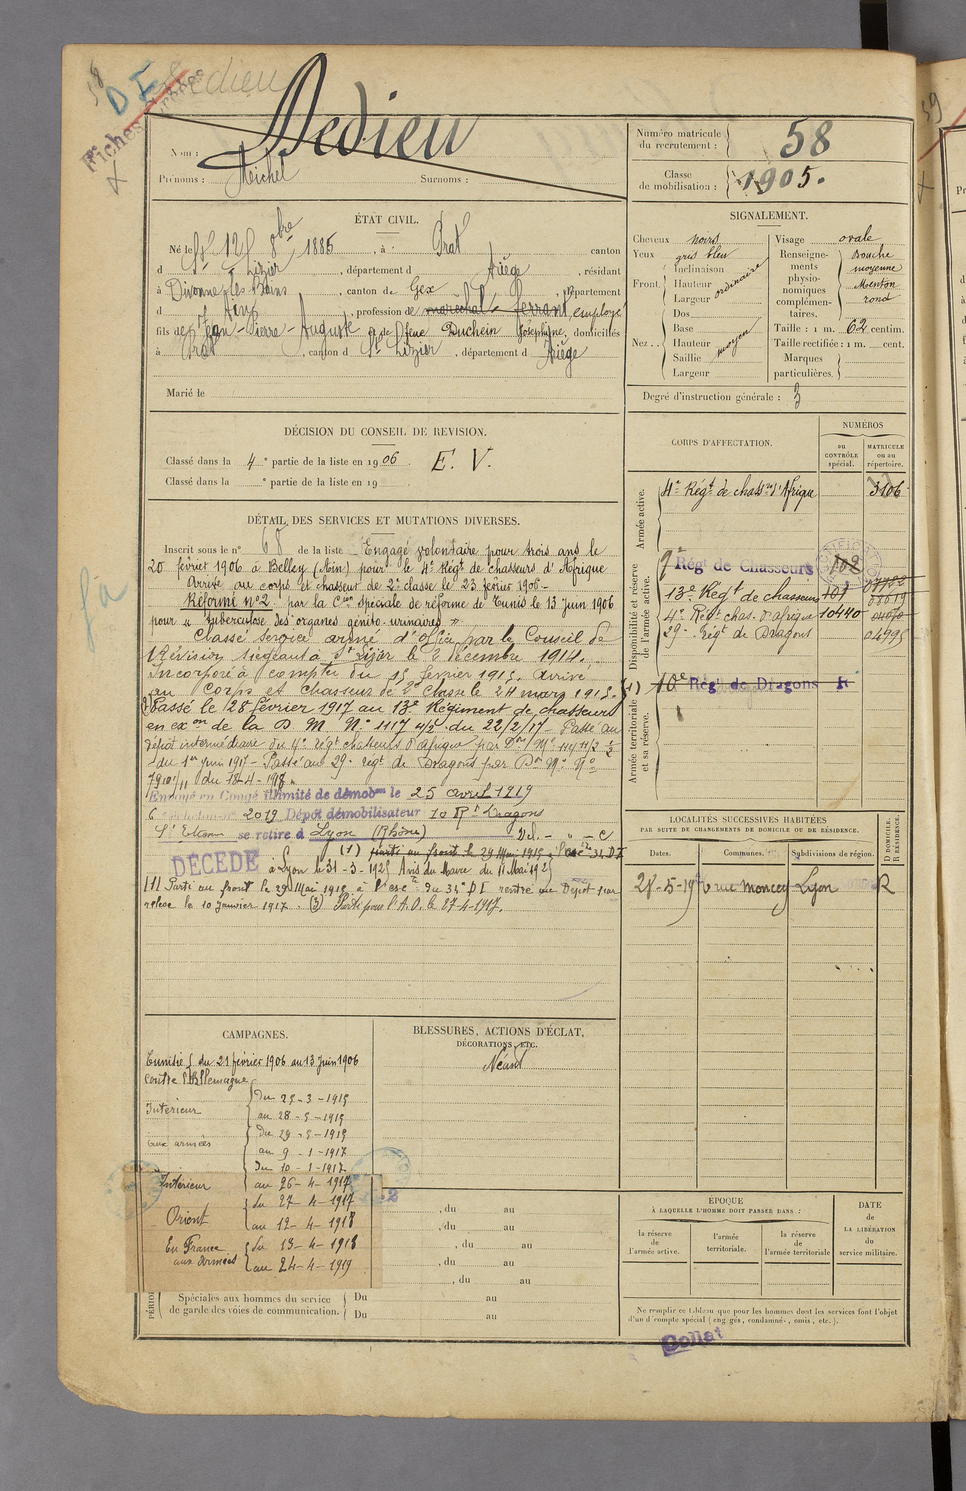 58
D I
Dedieu
Fiches
Dedieu
Nom :
Prénoms : Michel Surnoms :
Numéro matricule du recrutement : 58
Classe de mobilisation : 1905.
ÉTAT CIVIL.
Né le 12 8bre 1885, à Prat canton
d St Lizier, département d Ariège, résidant
à Divonne les Bains, canton de Gex, département
d Ain, profession de maréchal-ferrant, employé
fils de Jean-Pierre-Auguste et de feue Duchein Joséphine, domiciliés
à Prat, canton d St Lizier, département d Ariège
Marié le
SIGNALEMENT.
Cheveux noirs
Yeux gris bleu
Front. Inclinaison Hauteur Largeur ordinaire
Nez.. Dos Base Hauteur Saillie Largeur moyen
Visage ovale
Renseignements physionomiques complémentaires. Bouche moyenne Menton rond
Taille : 1 m. 62 centim.
Taille rectifiée : 1 m. cent.
Marques particulières.
Degré d'instruction générale : 3
DÉCISION DU CONSEIL DE REVISION.
Classé dans la 4e partie de la liste en 1906 E. V.
Classé dans la e partie de la liste en 19
DÉTAIL DES SERVICES ET MUTATIONS DIVERSES.
Inscrit sous le n° 68 de la liste Engagé volontaire pour trois ans le
20 février 1906 à Belley (Ain) pour le 4e Régt de chasseurs d'Afrique
Arrivé au corps et chasseur de 2e classe le 23 février 1906-
Réformé n°2 par la Con spéciale de réforme de Tunis le 13 Juin 1906
pour « tuberculose des organes génito-urinaires »
Classé service armé d'office par le Conseil de
Révision siégeant à St Lizier le 2 décembre 1914.
Incorporé à compter du 15 février 1915. Arrivé
au Corps et chasseur de 2e Classe le 24 mars 1915. (1)
Passé le 28 février 1917 au 13e Régiment de chasseurs
en exon de la D M N° 1117 11/2 du 22/2/17 - Passé au
dépôt intermédiaire du 4e régt chasseurs d'afrique par Don Mle
du 1er juin 1917 - Passé au 29e régt de Dragons par Don Mle No
du 18-4-1918
Envoyé en Congé illimité de démobon le 25 avril 1919
2019 Dépôt démobilisateur 10 Rt Dragons
St Etienne se retire à Lyon (Rhône)
(1) Parti au front le 29 Mai 1915
DÉCÉDÉ à Lyon le 31-3-1925 Avis du Maire du 11 Mai 1925
(1) Parti au front le 29 Mai 1915 à l'esc du 34e D I rentré au Dépôt pour
relève le 10 Janvier 1917. (3) Parti pour l'A.O. le 27-4-1917.
CORPS D'AFFECTATION.
NUMÉROS
au CONTRÔLE spécial.
MATRICULE ou au répertoire.
Armée active.
4e Régt de chasseurs d'Afrique 3106
Disponibilité et réserve de l'armée active.
Régt de Chasseurs 108
13e Régt de chasseurs 101
4e Régt chas. d'afrique 10440
29e Régt de Dragons 04995
Armée territoriale et sa réserve.
10e Régt de Dragons
LOCALITÉS SUCCESSIVES HABITÉES
PAR SUITE DE CHANGEMENTS DE DOMICILE OU DE RÉSIDENCE.
Dates. Communes. Subdivisions de région. D DOMICILE. R RÉSIDENCE.
28-5-19 6 rue Moncey Lyon R
CAMPAGNES.
Tunisie du 21 février 1906 au 13 Juin 1906
contre l'Allemagne
Intérieur du 25-3-1915
au 28-5-1915
aux armées du 29-5-1915
au 9-1-1917
Intérieur du 10-1-1917
au 26-4-1917
Orient du 27-4-1917
au 12-4-1918
En France aux Armées du 13-4-1918
au 24-4-1919
BLESSURES, ACTIONS D'ÉCLAT,
DÉCORATIONS, ETC.
Néant
, du au
, du au
, du au
, du au
, du au
Spéciales aux hommes du service de garde des voies de communication. Du au
Du au
ÉPOQUE
À LAQUELLE L'HOMME DOIT PASSER DANS :
la réserve de l'armée active.
l'armée territoriale.
la réserve de l'armée territoriale
DATE de LA LIBÉRATION du service militaire.
Ne remplir ce tableau que pour les hommes dont les services font l'objet
d'un décompte spécial (engagés, condamnés, omis, etc.).
59